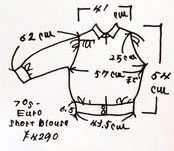 41 cm
62 cm
25cm
57 cm
54 cm
6.5
43.5cm
70s-
Euro
short blouse
¥4290